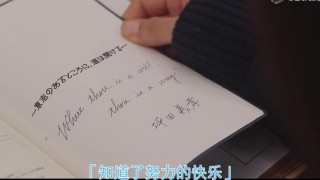 ―意志のあるところに、道は開ける―
Where there is a will
there is a way
坪田義孝
「知道了努力的快乐」